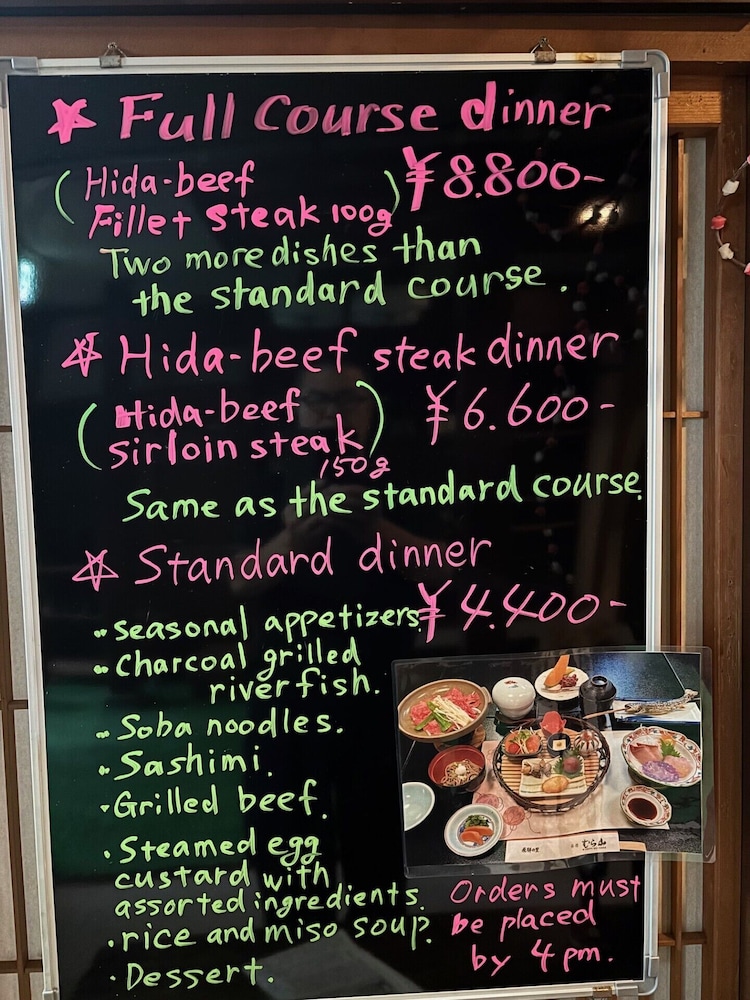 ☆ Full Course dinner
(Hida-beef
Fillet steak 100g) ¥8.800-
Two more dishes than
the standard course.
☆ Hida-beef steak dinner
(Hida-beef
sirloin steak
150g) ¥6.600-
Same as the standard course.
☆ Standard dinner
¥4.400-
・Seasonal appetizers.
・Charcoal grilled
river fish.
・Soba noodles.
・Sashimi.
・Grilled beef.
・Steamed egg
custard with
assorted ingredients.
・rice and miso soup.
・Dessert.
むら山
Orders must
be placed
by 4 pm.